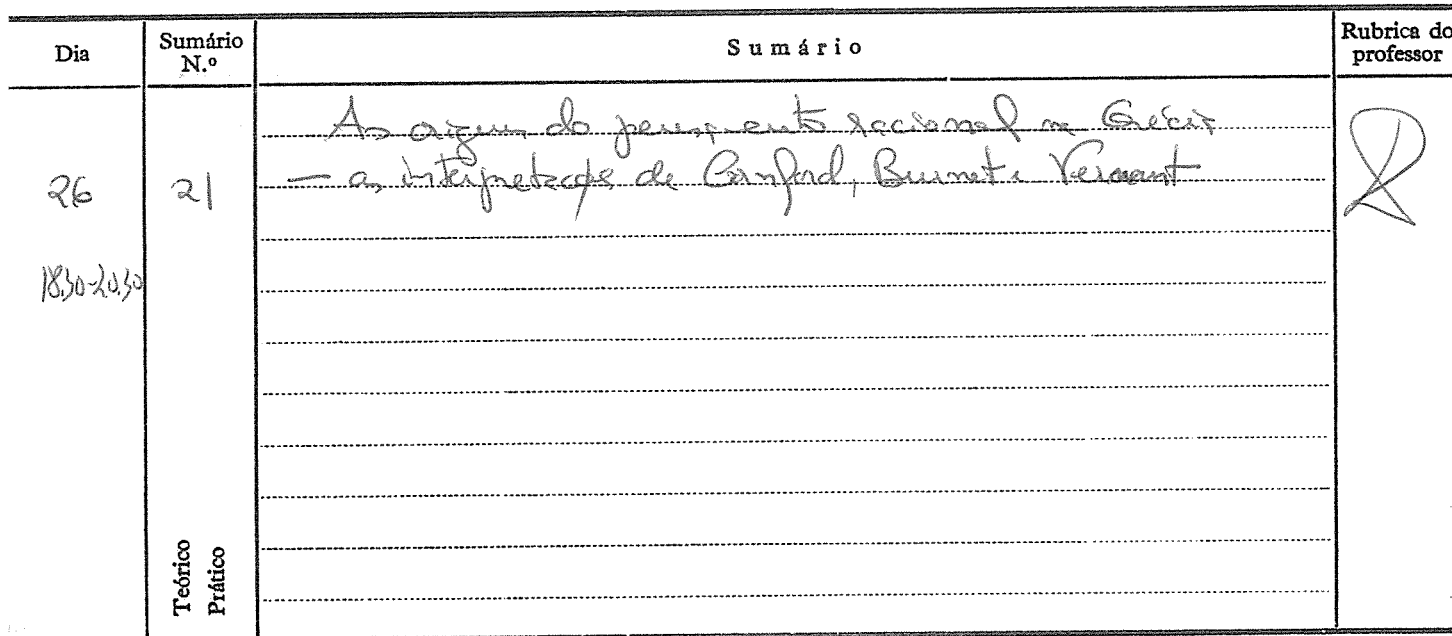 Dia
Sumário N.º
Sumário
Rubrica do professor
26
18.30-20.30
21
As origens do pensamento racional na Grécia
— as interpretações de Cornford, Burnet e Vernant
Teórico
Prático